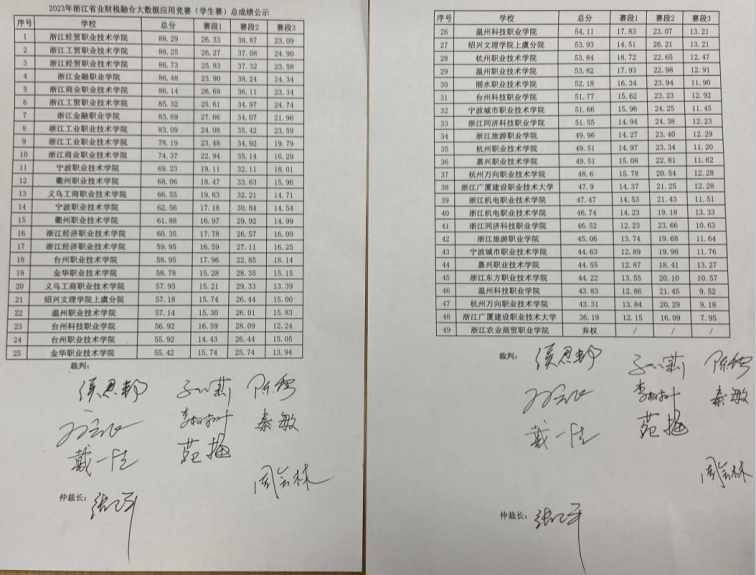 2023年浙江省业财税融合大数据应用竞赛（学生赛）总成绩公示
序号 学校 总分 赛段1 赛段2 赛段3
1 浙江经贸职业技术学院 88.29 26.33 38.87 23.09
2 浙江工贸职业技术学院 88.25 26.27 37.08 24.90
3 浙江经贸职业技术学院 86.73 25.83 37.32 23.58
4 浙江金融职业学院 86.48 23.90 38.24 24.34
5 浙江商业职业技术学院 86.14 26.69 36.11 23.34
6 浙江工贸职业技术学院 85.32 25.61 34.97 24.74
7 浙江金融职业学院 83.69 27.66 34.07 21.96
8 浙江工业职业技术学院 83.09 24.08 35.42 23.59
9 浙江工业职业技术学院 78.19 23.48 34.92 19.79
10 浙江商业职业技术学院 74.37 22.94 35.14 16.29
11 宁波职业技术学院 69.23 19.11 32.11 18.01
12 衢州职业技术学院 68.06 18.47 33.63 15.96
13 义乌工商职业技术学院 66.55 19.63 32.21 14.71
14 宁波职业技术学院 62.56 17.18 30.84 14.54
15 衢州职业技术学院 61.88 16.97 29.92 14.99
16 浙江经济职业技术学院 60.35 17.78 26.57 16.00
17 浙江经济职业技术学院 59.95 16.59 27.11 16.25
18 台州职业技术学院 58.95 17.96 22.85 18.14
19 金华职业技术学院 58.78 15.28 28.35 15.15
20 义乌工商职业技术学院 57.93 15.21 29.33 13.39
21 绍兴文理学院上虞分院 57.18 15.74 26.44 15.00
22 温州职业技术学院 57.14 15.30 26.01 15.83
23 台州科技职业学院 56.92 16.59 28.09 12.24
24 台州职业技术学院 55.92 14.43 26.44 15.05
25 金华职业技术学院 55.42 15.74 25.74 13.94
裁判：
陈
秦敏
戴一
范
周
仲裁长：
序号 学校 总分 赛段1 赛段2 赛段3
26 温州科技职业学院 54.11 17.83 23.07 13.21
27 绍兴文理学院上虞分院 53.93 14.51 26.21 13.21
28 杭州职业技术学院 53.84 18.72 22.65 12.47
29 温州职业技术学院 53.82 17.93 22.98 12.91
30 丽水职业技术学院 52.18 16.34 23.94 11.90
31 台州科技职业学院 51.77 15.62 23.23 12.92
32 宁波城市职业技术学院 51.66 15.96 24.25 11.45
33 浙江同济科技职业学院 51.55 14.94 24.38 12.23
34 浙江旅游职业学院 49.96 14.27 23.40 12.29
35 杭州职业技术学院 49.51 14.97 23.34 11.20
36 嘉兴职业技术学院 49.51 15.08 22.81 11.62
37 杭州万向职业技术学院 48.6 15.78 20.54 12.28
38 浙江广厦建设职业技术大学 47.9 14.37 21.25 12.28
39 浙江机电职业技术学院 47.47 14.53 21.43 11.51
40 浙江机电职业技术学院 46.74 14.23 19.18 13.33
41 浙江同济科技职业学院 46.52 12.23 23.66 10.63
42 浙江旅游职业学院 45.06 13.74 19.68 11.64
43 宁波城市职业技术学院 44.63 12.89 19.98 11.76
44 嘉兴职业技术学院 44.55 12.87 18.41 13.27
45 浙江东方职业技术学院 44.22 13.55 20.10 10.57
46 温州科技职业学院 43.83 12.86 21.45 9.52
47 杭州万向职业技术学院 43.31 13.84 20.29 9.18
48 浙江广厦建设职业技术大学 36.19 12.15 16.09 7.95
49 浙江农业商贸职业学院 弃权 / / /
裁判：
陈
秦敏
戴一
范
周
仲裁长：